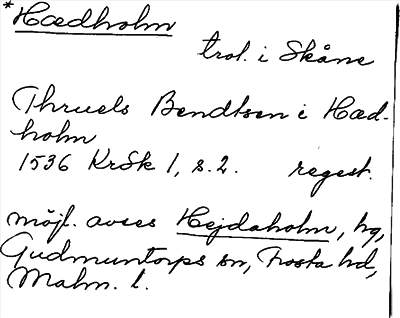 *Hædholm
trol. i Skåne
Thruels Bendtsen i Hæd-
holm
1536 KrSk 1, s. 2. regest.
möjl. avses Hejdaholm, hg,
Gudmuntorps sn, Frosta hd,
Malm. l.